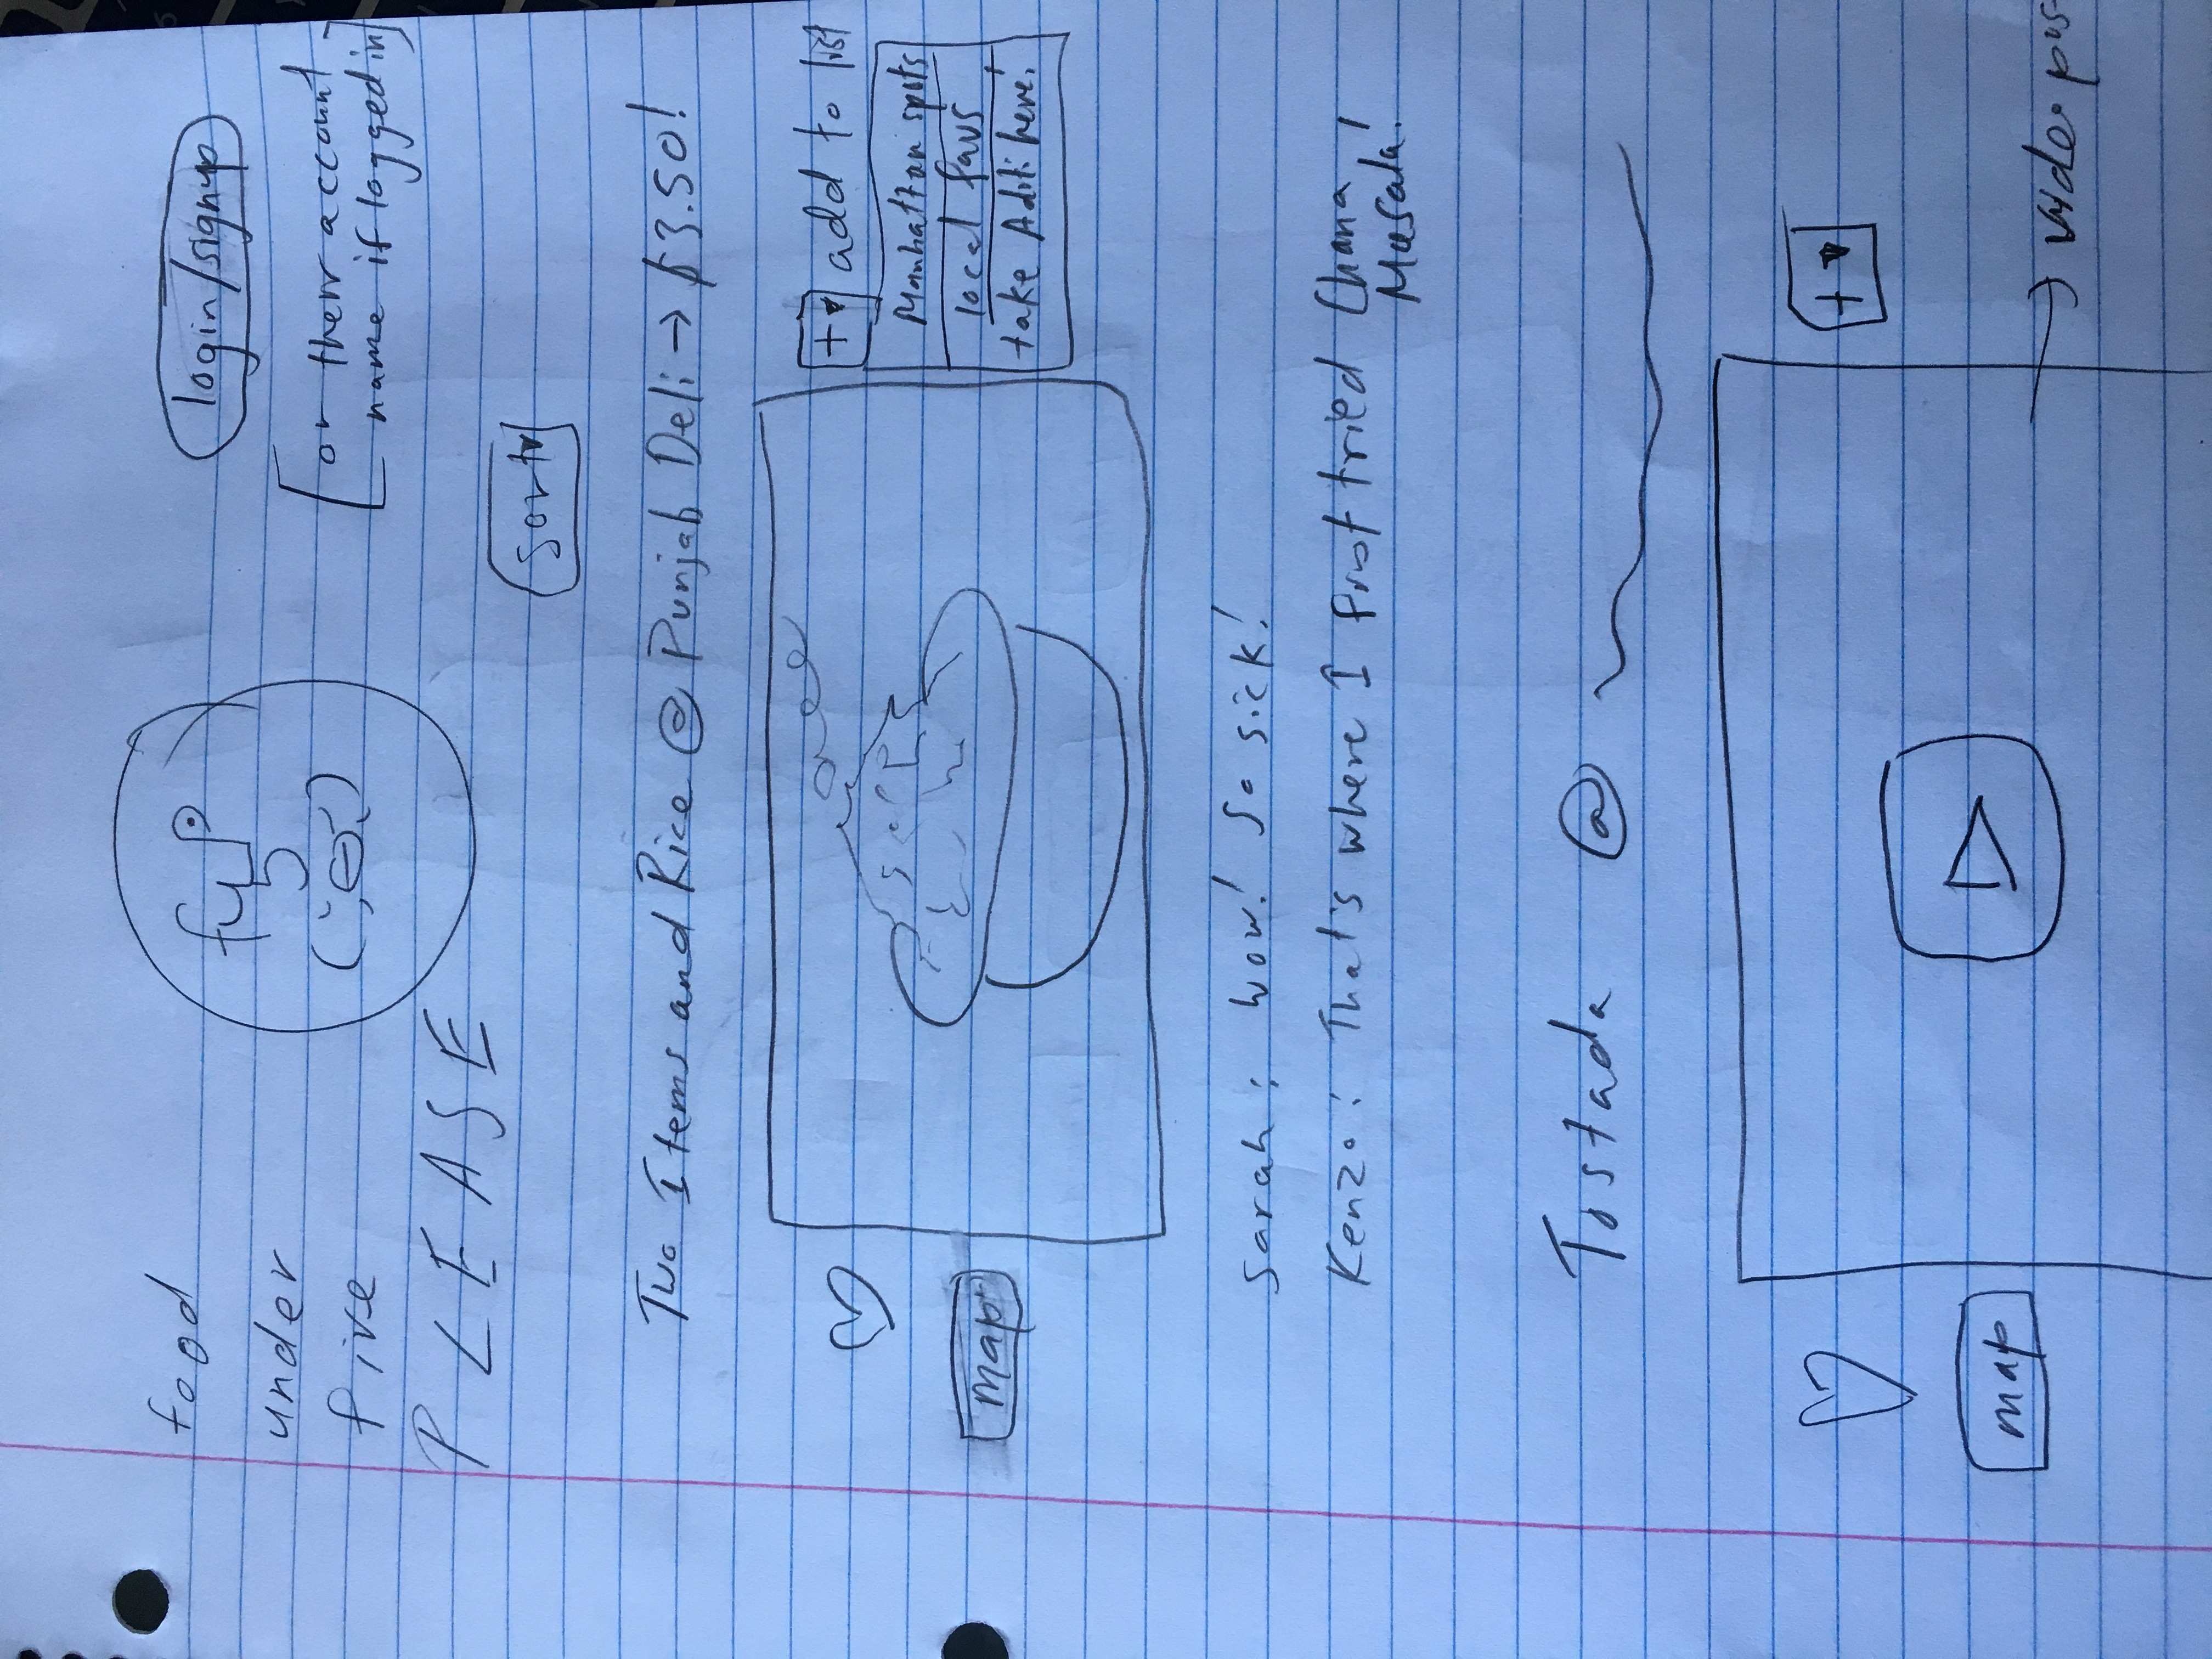 food
under
five
PLEASE
fu P
5
login/signup
[or their account
name if logged in]
sort
Two Items and Rice @ Punjab Deli → $3.50!
+ add to list
Manhattan spots
local favs
take Aditi here!
map
Sarah: Wow! So sick!
Kenzo: That's where I first tried Chana
Masala!
Tostada @
+
map
→ video pos